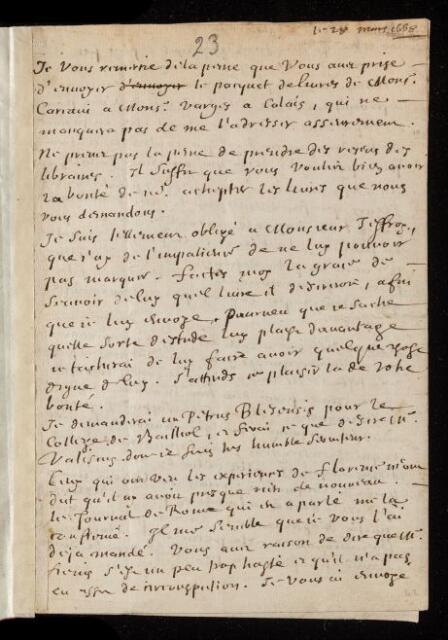 le 28 mars 1668
23
Je Vous remercie de la peine que Vous avez prise
d'envoyer d'envoyer le pacquet de livres de Mons.r
à Mons.r Varges a Calais, qui ne
manquera pas de me l'adresser asseurement.
Ne prenez pas la peine de prendre des reçeus des
libraires. Il suffit que vous vouliez bien avoir
la bonté de achepter les livres que nous
vous demandons.
Je suis tellement obligé a Monsieur
que j'ay de l'impatience de ne luy pouvoir
pas marquer. faictes moy la grace de
scavoir de luy quel livre il desireroit, afin
que je luy envoye, Pourveu que je sache
quelle sorte d'estude luy plaist davantage
je tacherai de luy faire avoir quelque chose
digne de luy. J'attends ce plaisir la de votre
bonté.
Je demanderai un Petrus Blesensis pour le
College de et ferai ce que desire Mr.
dont je suis tres humble serviteur.
Ceux qui ont veu les experiences de Florence m'ont
dit qu'il n'y avoit presque rien de nouveau.
le Journal de Rome qui en a parlé me l'a
confirmé. Il me semble que je vous l'ai
deja mandé. Vous avez raison de dire que Mr.
s'est un peu trop hasté et qu'il n'a pas
eu assez de circonspection. Je Vous ai envoyé